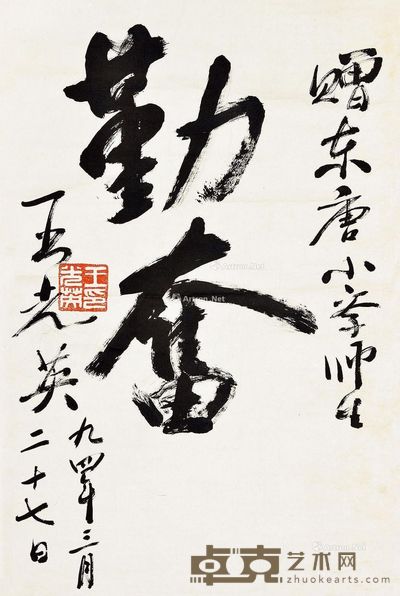 赠东唐小学师生
勤奮
王光英
九四年三月
二十七日
王印光英
Artron.Net
卓克艺术网
zhuokearts.com